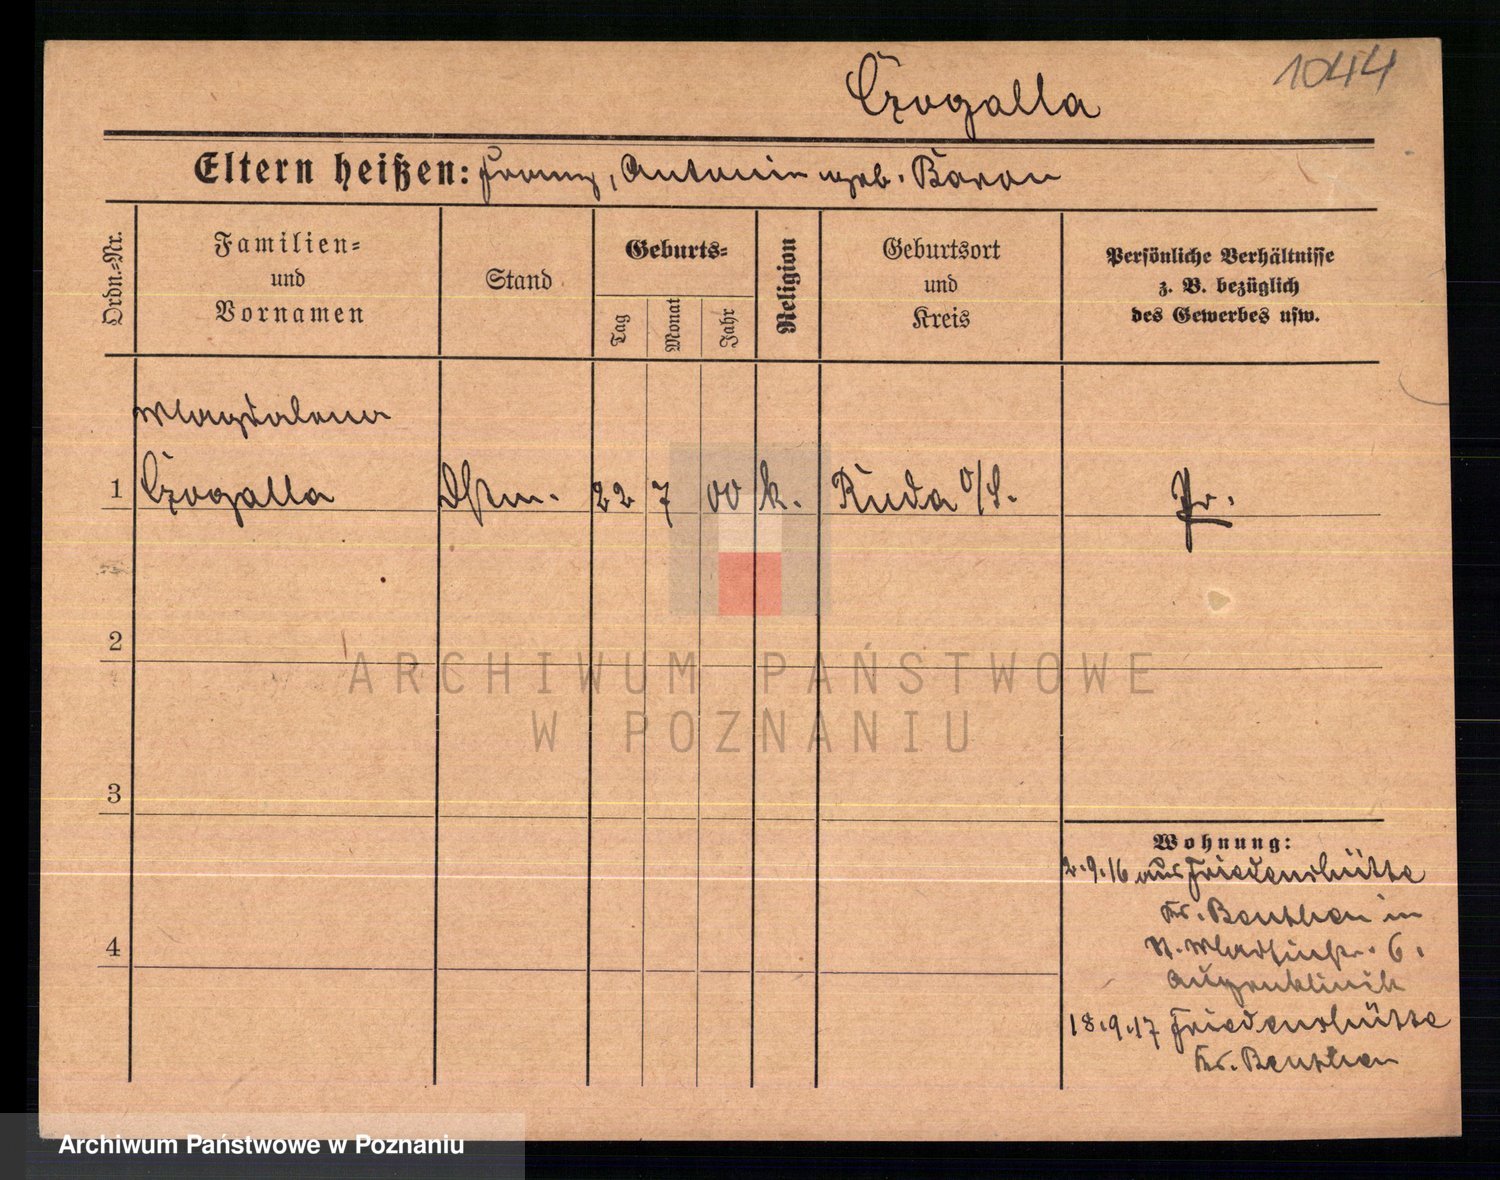 1044
Czogalla
Eltern heißen: Franz, Antonin geb. Baron
Ordn.=Nr.
Familien=
und
Vornamen
Stand
Geburts=
Tag
Monat
Jahr
Religion
Geburtsort
und
Kreis
Persönliche Verhältnisse
z. B. bezüglich
des Gewerbes usw.
Magdalena
1 Czogalla 22 7 00 k. Ruda O/S. Pr.
2
ARCHIWUM PAŃSTWOWE
W POZNANIU
3
Wohnung:
2.9.16 aus Friedenshütte
Kr. Beuthen in
St. Martinstr. 6.
4
Augenklinik
18.9.17 Friedenshütte
Kr. Beuthen
Archiwum Państwowe w Poznaniu